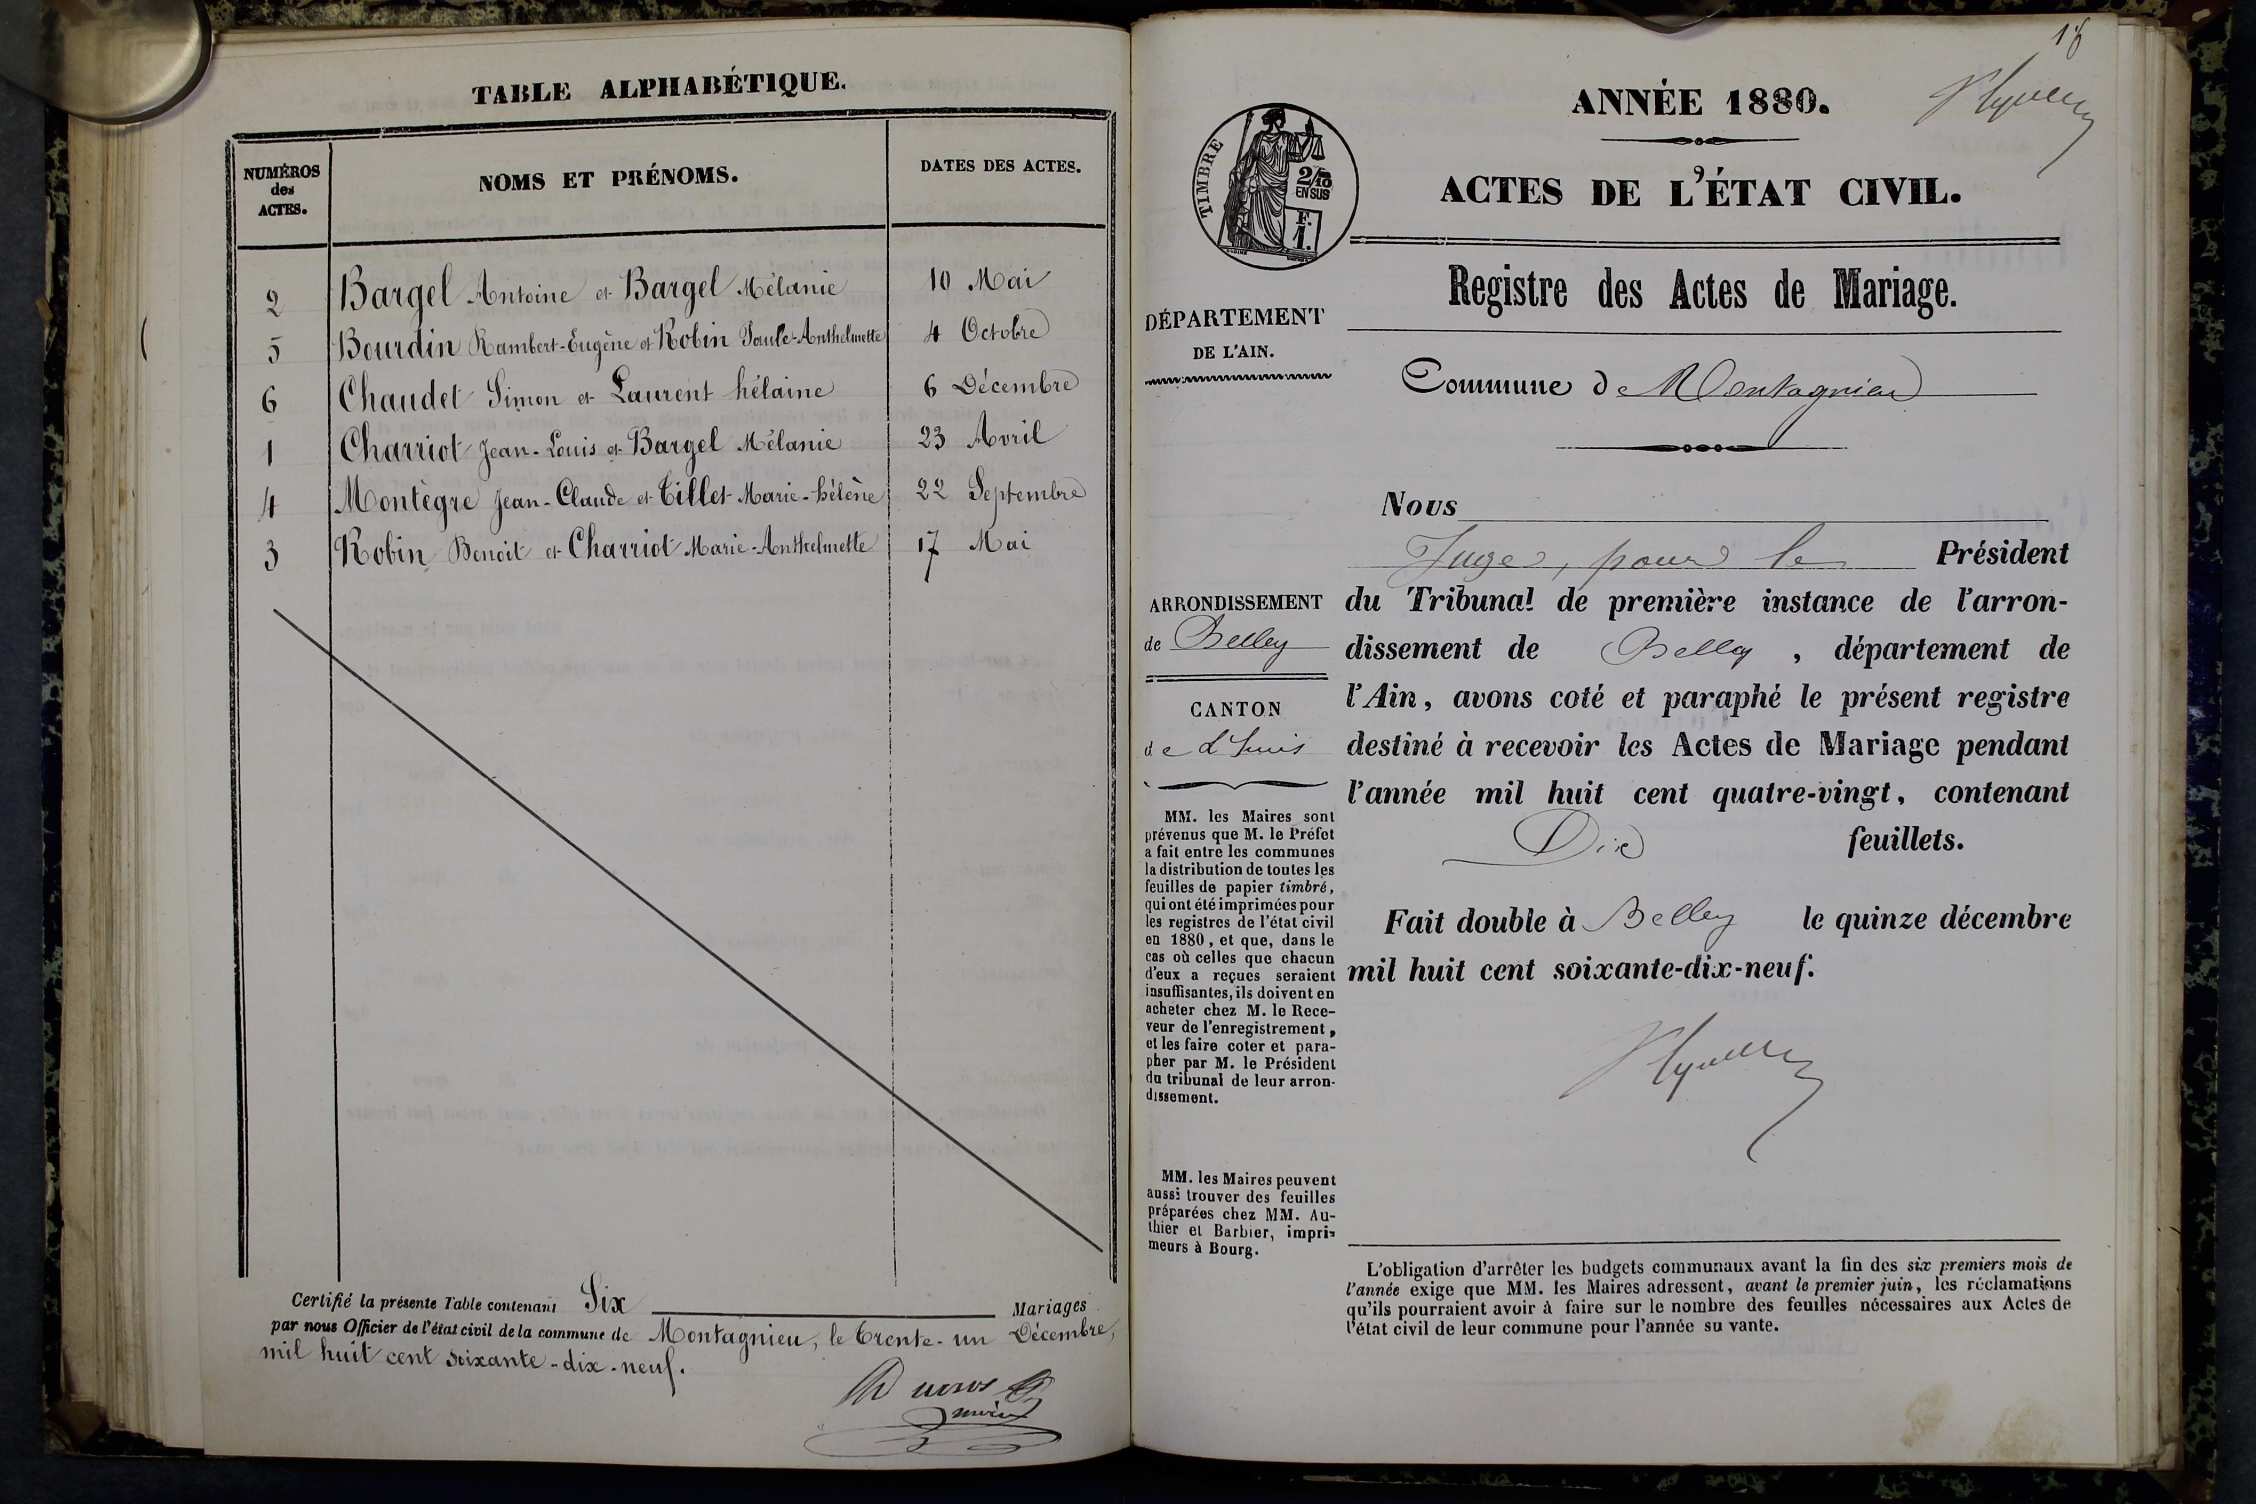 TABLE ALPHABÉTIQUE.
NUMÉROS des ACTES.
NOMS ET PRÉNOMS.
DATES DES ACTES.
2 Bargel Antoine et Bargel Mélanie 10 Mai
5 Bourdin Rambert-Eugène et Robin Paule-Anthelmette 4 Octobre
6 Chaudet Simon et Laurent hélaine 6 Décembre
1 Charriot Jean-Louis et Bargel Mélanie 23 Avril
4 Montègre Jean-Claude et Tillet Marie-hélène 22 Septembre
3 Robin Benoit et Charriot Marie-Anthelmette 17 Mai
Certifié la présente Table contenant Six Mariages
par nous Officier de l'état civil de la commune de Montagnieu, le trente-un Décembre,
mil huit cent soixante-dix-neuf.
ANNÉE 1880.
TIMBRE
2/10
EN SUS
F.
1.
ACTES DE L'ÉTAT CIVIL.
Registre des Actes de Mariage.
DÉPARTEMENT
DE L'AIN.
Commune de Montagnieu
Nous
Juge, pour le Président
du Tribunal de première instance de l'arron-
dissement de Belley, département de
l'Ain, avons coté et paraphé le présent registre
destiné à recevoir les Actes de Mariage pendant
l'année mil huit cent quatre-vingt, contenant
Dix feuillets.
Fait double à Belley le quinze décembre
mil huit cent soixante-dix-neuf.
ARRONDISSEMENT
de Belley
CANTON
de Lhuis
MM. les Maires sont
prévenus que M. le Préfet
a fait entre les communes
la distribution de toutes les
feuilles de papier timbré,
qui ont été imprimées pour
les registres de l'état civil
en 1880, et que, dans le
cas où celles que chacun
d'eux a reçues seraient
insuffisantes, ils doivent en
acheter chez M. le Rece-
veur de l'enregistrement,
et les faire coter et para-
pher par M. le Président
du tribunal de leur arron-
dissement.
MM. les Maires peuvent
aussi trouver des feuilles
préparées chez MM. Au-
thier et Barbier, impri-
meurs à Bourg.
L'obligation d'arrêter les budgets communaux avant la fin des six premiers mois de
l'année exige que MM. les Maires adressent, avant le premier juin, les réclamations
qu'ils pourraient avoir à faire sur le nombre des feuilles nécessaires aux Actes de
l'état civil de leur commune pour l'année su vante.